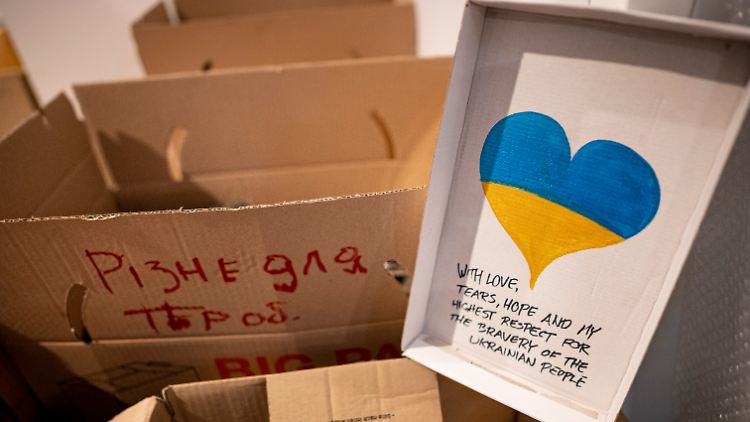 РІЗНЕ ДЛЯ
ТЕРОБ.
BIG
WITH LOVE,
TEARS, HOPE AND MY
HIGHEST RESPECT FOR
THE BRAVERY OF THE
UKRAINIAN PEOPLE